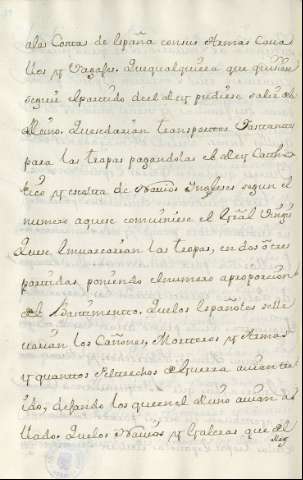 alas Costas de España consus Armas Cava
llos y Vagajes. Quequalquiera que quisiese
seguir el partido de el Rey pudiese salir del
Reino. Quesedarian transportes vastantes
para las tropas pagandolas el Rey Catho
lico y escolta de Navios Ingleses segun el
numero aque conviniese el Grãl Vings
Quese embarcarian las tropas, en dos ò tres
partidas poniendo el numero aproporcion
del Bastimento, Quelos Españoles selle
varian los Cañones, Morteros y Armas
y quantos Pertrechos de guerra avian tra
ido, dejando los queen el Reino avian ha
llado. Quelos Navios y Galeras que del
Rey